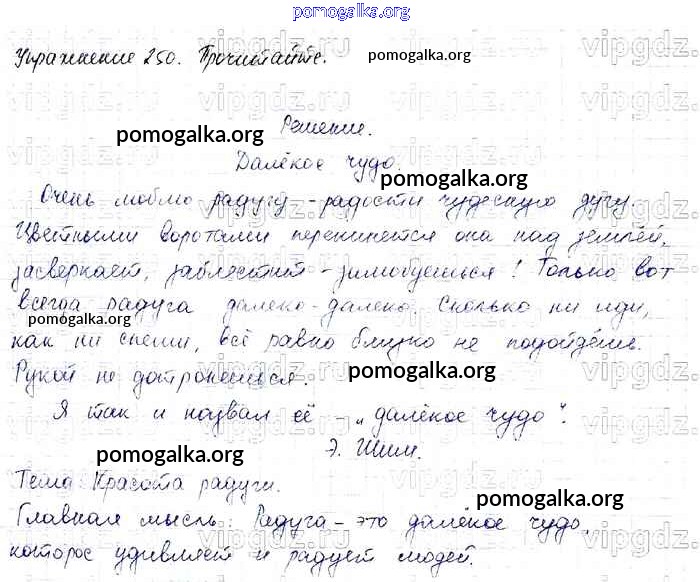 pomogalka.org
Упражнение 250. Прочитайте.
pomogalka.org
Решение.
pomogalka.org
Далёкое чудо.
pomogalka.org
Очень люблю радугу - радости чудесную дугу.
Цветными воротами перекинется она над землёй,
засверкает, заблестит - залюбуешься! Только вот
всегда радуга далеко-далеко. Сколько ни иди,
pomogalka.org
как ни спеши, всё равно близко не подойдёшь.
pomogalka.org
Рукой не дотронешься.
Я так и назвал её - „далёкое чудо".
Э. Шим.
pomogalka.org
Тема Красота радуги.
pomogalka.org
Главная мысль: Радуга - это далёкое чудо,
которое удивляет и радует людей.
vipgdz.ru